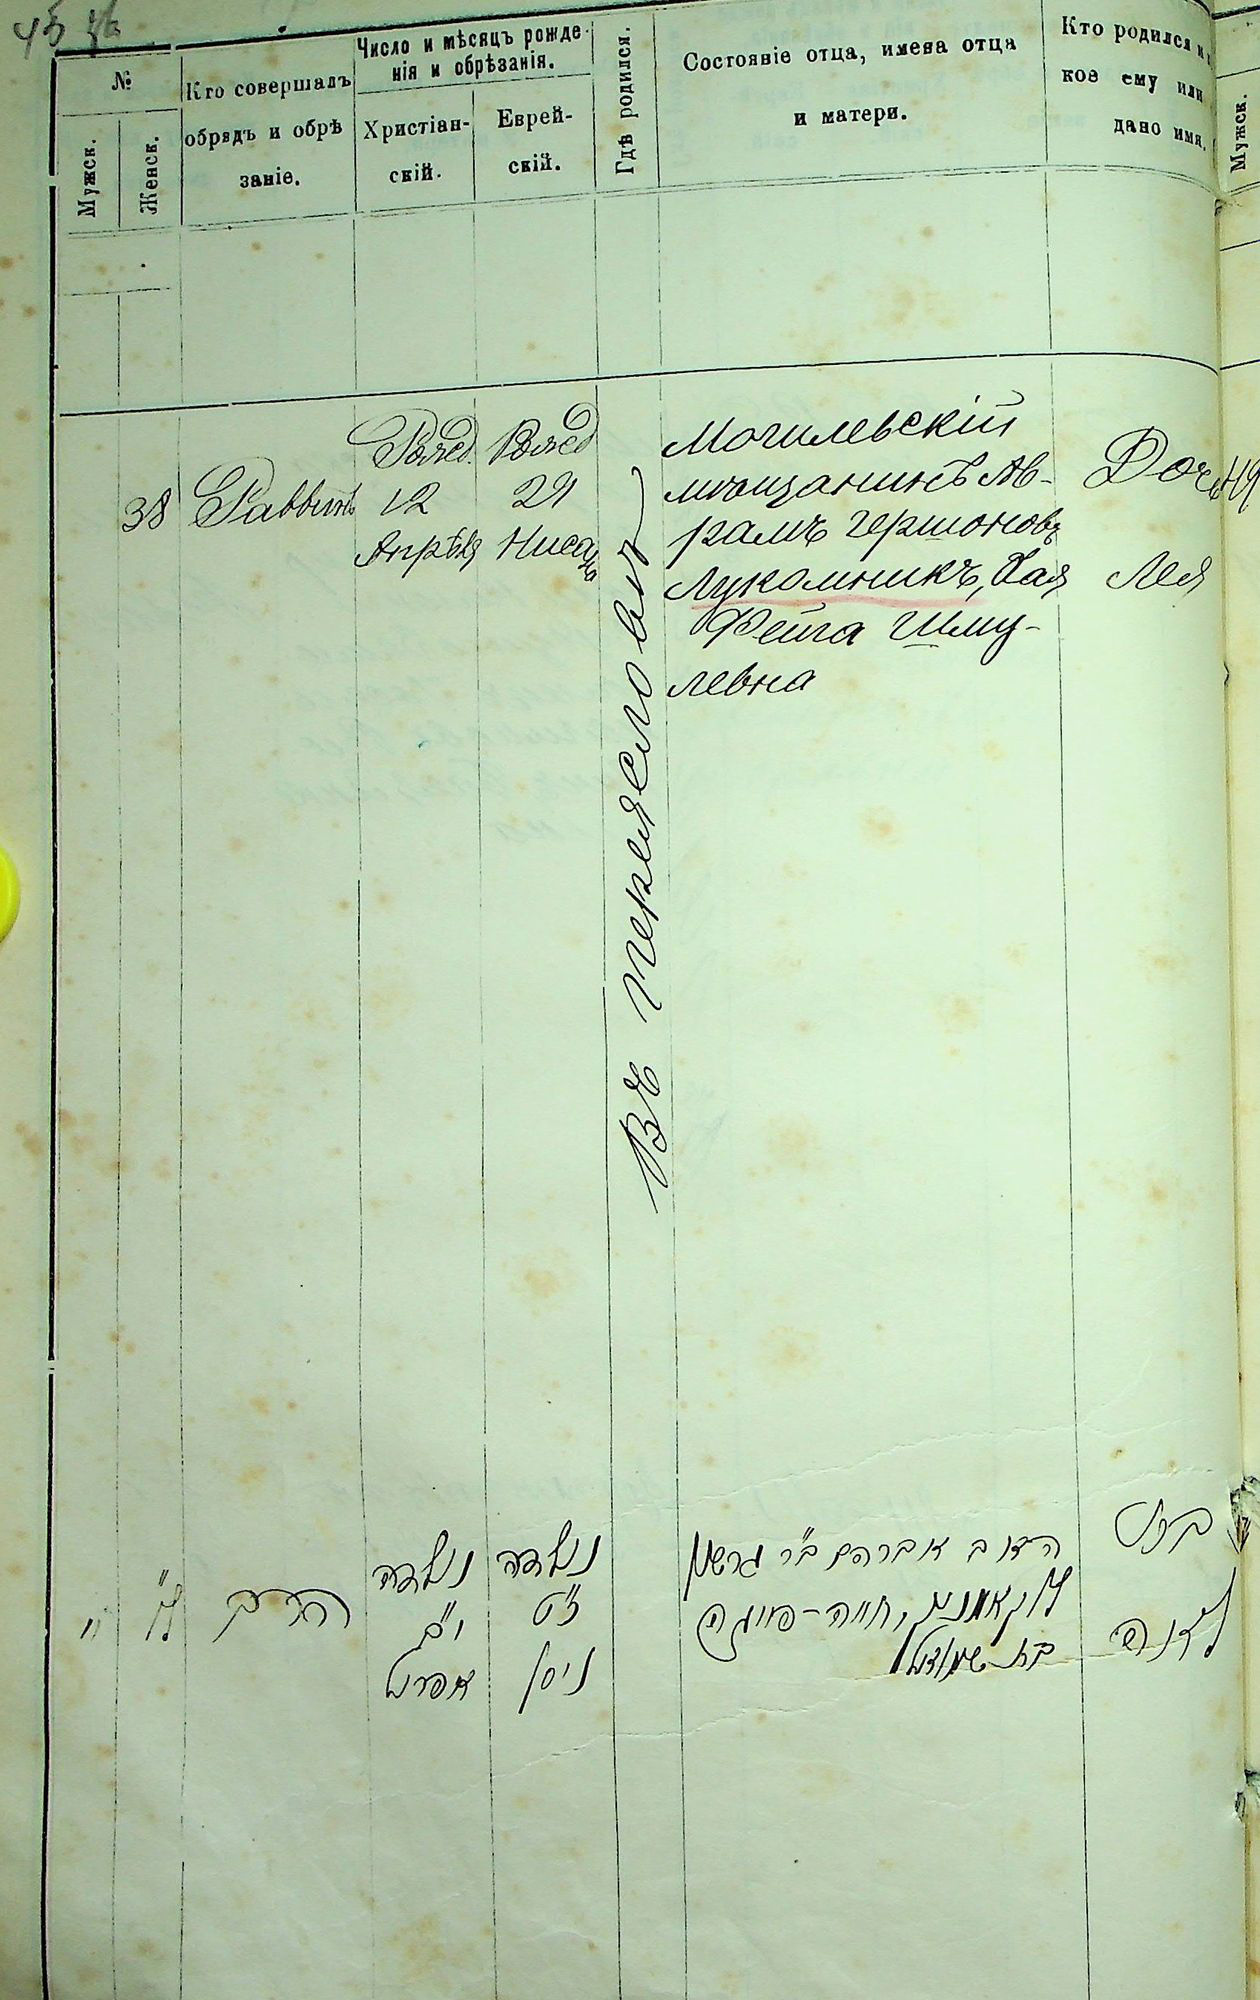 45
№
Мужск.
Женск.
Кто совершалъ
обрядъ и обрѣ
заніе.
Число и мѣсяцъ рожде-
нія и обрѣзанія.
Христіан-
скій.
Еврей-
скій.
Гдѣ родился.
Состояніе отца, имена отца
и матери.
Кто родился и
кое ему или
дано имя.
Мужск.
38
Раввинъ
Рожд.
12
Апрѣля
Рожд
Нисана
Въ Переяславѣ
Могилевскій
мѣщанинъ Ав-
рамъ Гершоновъ
Лукомникъ, Хая
Фейга Шму-
левна
Дочь
Лея
49
"
הרב
נולדה
י"ב
אפריל
נולדה
ניסן
אברהם ב"ר גרשון
חיה-פייגה
בת שמואל
בת
לאה